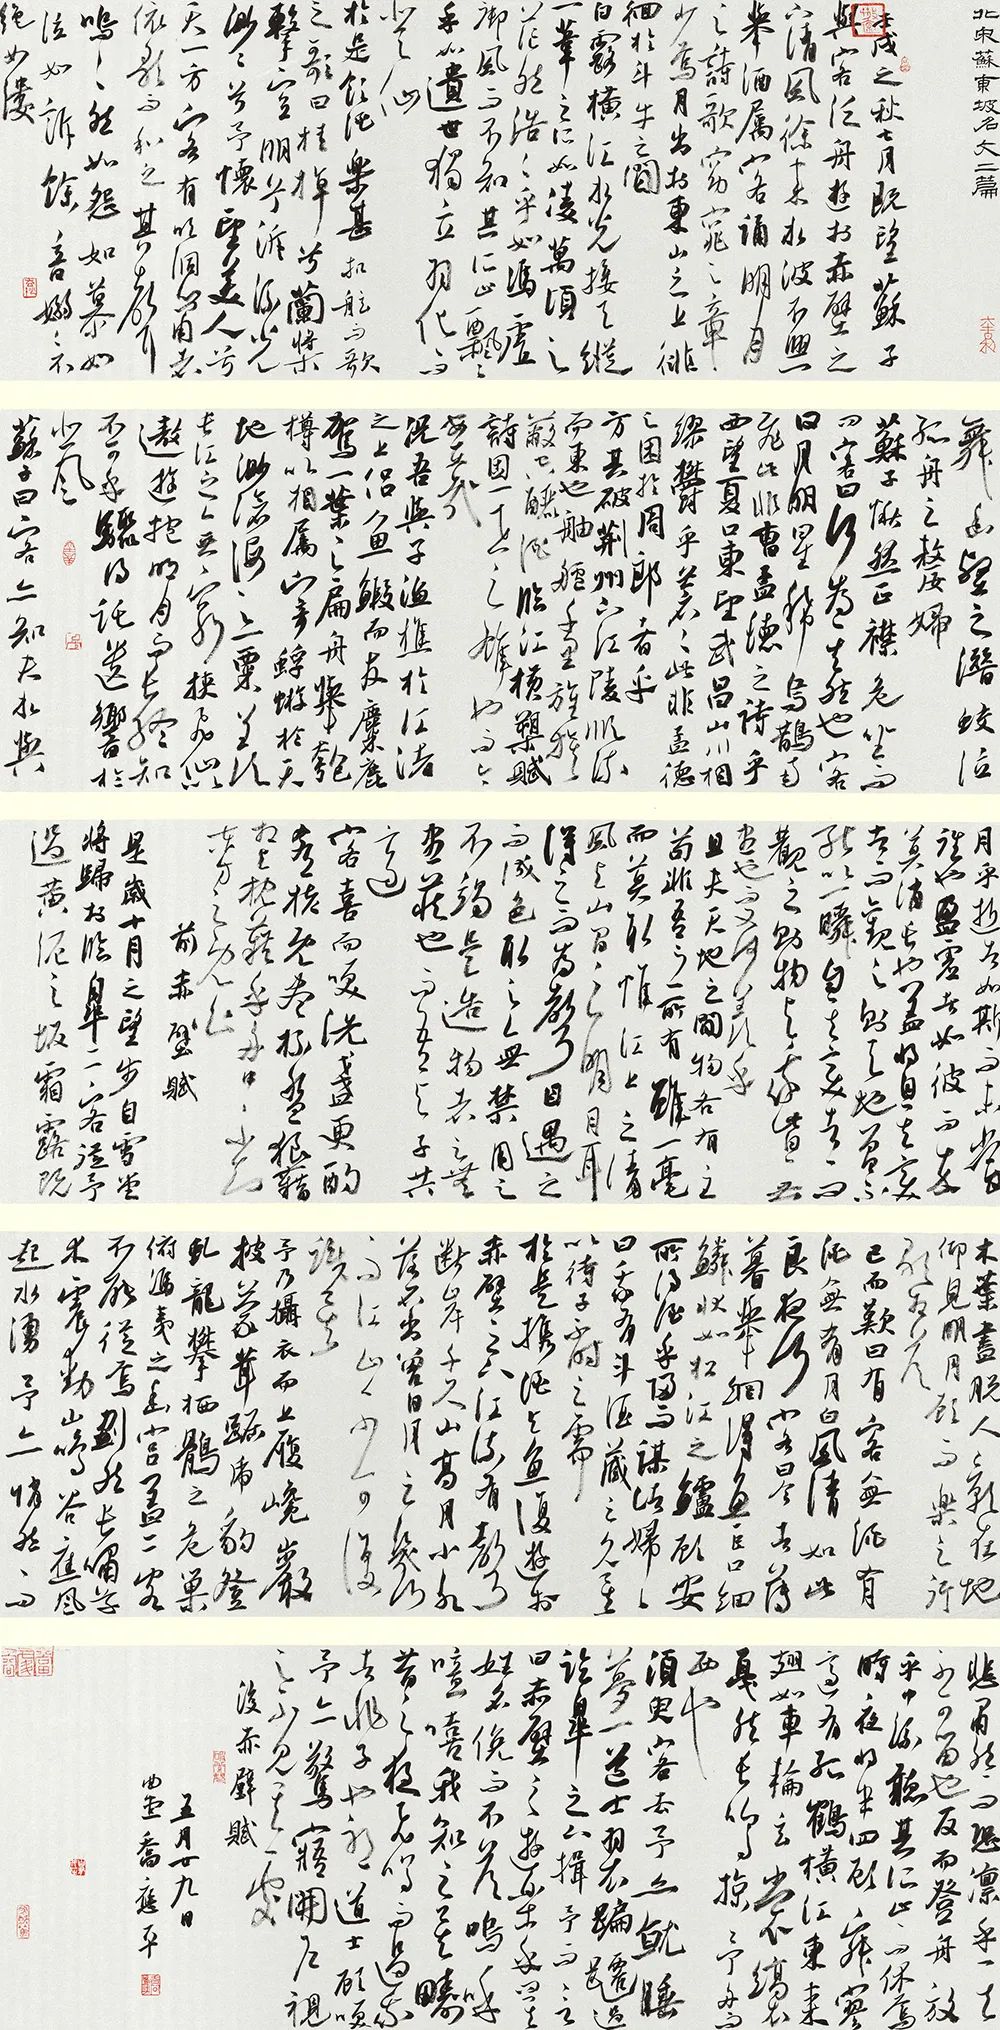 北宋蘇東坡名文二篇
壬戌之秋七月既望蘇子
與客泛舟遊於赤壁之
下清風徐來水波不興
舉酒屬客誦明月
之詩歌窈窕之章
少焉月出於東山之上徘
徊於斗牛之間
白露橫江水光接天縱
一葦之所如凌萬頃之
茫然浩浩乎如馮虛
御風而不知其所止飄飄
乎如遺世獨立羽化而
登仙
於是飲酒樂甚扣舷而歌
之歌曰桂棹兮蘭槳
擊空明兮泝流光
渺渺兮予懷望美人兮
天一方客有吹洞簫者
依歌而和之其聲
嗚嗚然如怨如慕如
泣如訴餘音嫋嫋不
絕如縷
舞幽壑之潛蛟泣
孤舟之嫠婦
蘇子愀然正襟危坐而
問客曰何為其然也客
曰月明星稀烏鵲南
飛此非曹孟德之詩乎
西望夏口東望武昌山川相
繆鬱乎蒼蒼此非孟德
之困於周郎者乎
方其破荊州下江陵順流
而東也舳艫千里旌旗
蔽空釃酒臨江橫槊賦
詩固一世之雄也而今
安在哉
況吾與子漁樵於江渚
之上侶魚鰕而友麋鹿
駕一葉之扁舟舉匏
樽以相屬寄蜉蝣於天
地渺滄海之一粟羨
長江之無窮挾飛仙以
遨遊抱明月而長終知
不可乎驟得託遺響於
悲風
蘇子曰客亦知夫水與
月乎逝者如斯而未嘗
往也盈虛者如彼而卒
莫消長也蓋將自其變
者而觀之則天地曾不
能以一瞬自其不變者而
觀之則物與我皆無
盡也而又何羨乎
且夫天地之間物各有主
苟非吾之所有雖一毫
而莫取惟江上之清
風與山間之明月耳
得之而為聲目遇之
而成色取之無禁用之
不竭是造物者之無
盡藏也而吾與子共
適
客喜而笑洗盞更酌
肴核既盡杯盤狼藉
相與枕藉乎舟中不知
東方之既白
前赤壁賦
是歲十月之望步自雪堂
將歸於臨皋二客從予
過黃泥之坂霜露既
木葉盡脫人影在地
仰見明月顧而樂之行
歌相答
已而歎曰有客無酒有
酒無肴月白風清如此
良夜何客曰今者薄
暮舉網得魚巨口細
鱗狀如松江之鱸顧安
所得酒乎歸而謀諸婦婦
曰我有斗酒藏之久矣
以待子不時之需
於是攜酒與魚復遊於
赤壁之下江流有聲
斷岸千尺山高月小水
落石出曾日月之幾何
而江山不可復
識矣
予乃攝衣而上履巉巖
披蒙茸踞虎豹登
虯龍攀栖鶻之危巢
俯馮夷之幽宮蓋二客
不能從焉劃然長嘯草
木震動山鳴谷應風
起水湧予亦悄然而
悲肅然而恐凜乎其
不可留也反而登舟放
乎中流聽其所止而休焉
時夜將半四顧寂寥
適有孤鶴橫江東來
翅如車輪玄裳縞衣
戛然長鳴掠予舟而
西也
須臾客去予亦就睡
夢一道士羽衣蹁躚過
臨皋之下揖予而言
曰赤壁之遊樂乎問其
姓名俛而不答嗚呼
噫嘻我知之矣疇
昔之夜飛鳴而過我
者非子也耶道士顧笑
予亦驚寤開戶視
之不見其處
後赤壁賦
五月廿九日
喬應平